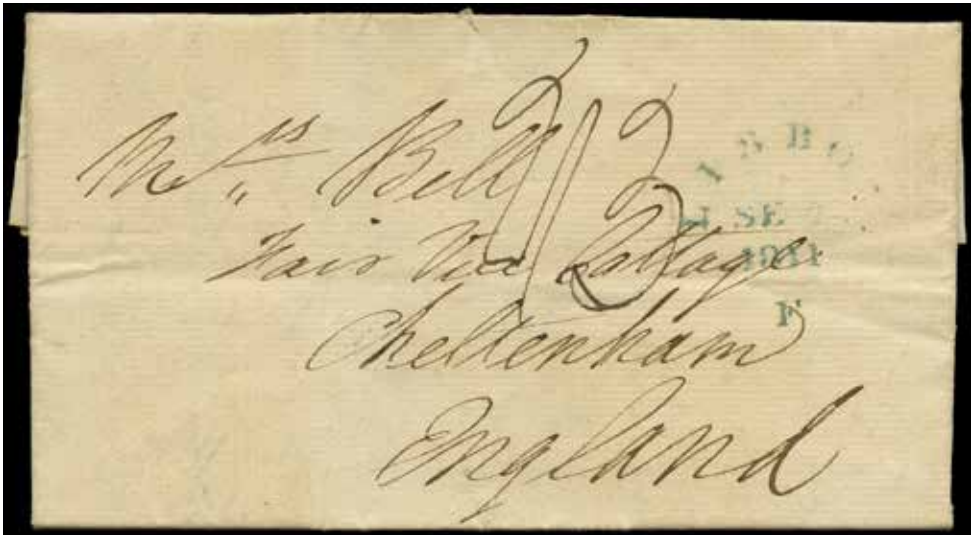 Mrs Bell
Fair View Cottage
Cheltenham
England
2/3
ISBO
SE
1811
F